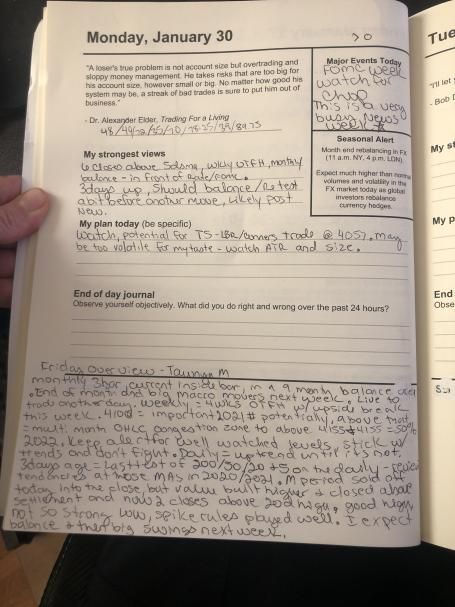 Monday, January 30
"A loser's true problem is not account size but overtrading and
sloppy money management. He takes risks that are too big for
his account size, however small or big. No matter how good his
system may be, a streak of bad trades is sure to put him out of
business."
- Dr. Alexander Elder, Trading For a Living
My strongest views
6 closes above 50sma, wkly OTFH, monthly
balance - in front of rate/fomc.
3days up, should balance/retest
a bit before another move, likely post
news.
My plan today (be specific)
Watch, potential for TS-LBR/corners trade @ 4057. may
be too volatile for my taste - watch ATR and size.
End of day journal
Observe yourself objectively. What did you do right and wrong over the past 24 hours?
Major Events Today
FOMC week
watch for
chop
This is a very
busy news
week
Seasonal Alert
Month end rebalancing in FX
(11 a.m. NY, 4 p.m. LDN).
Expect much higher than normal
volumes and volatility in the
FX market today as global
investors rebalance
currency hedges.
Friday overview - M
monthly 3bar, current inside bar, in a 9 month balance
. End of month and big macro movers next week. Live to
trade another day. Weekly = 4wks OTFH w/ upside break
this week. 4100 = important 2021 # potentially, above that
= multi month OHLC congestion zone to above 4155 # 4155 = 50%
2022. Keep alert for well watched levels, stick w/
trends and don't fight. Daily = uptrend until its not.
3days ago = last test of 200/50/20 + 5 on the daily - review
tendencies at those MAs in 2020/2021. M period sold off
today into the close, but value built higher & closed above
settlement and now 2 closes above 20d high, good high,
not so strong low, spike rules played well. I expect
balance & then big swings next week.
Tue
"I'll let
- Bob D
My st
My p
End
Obse